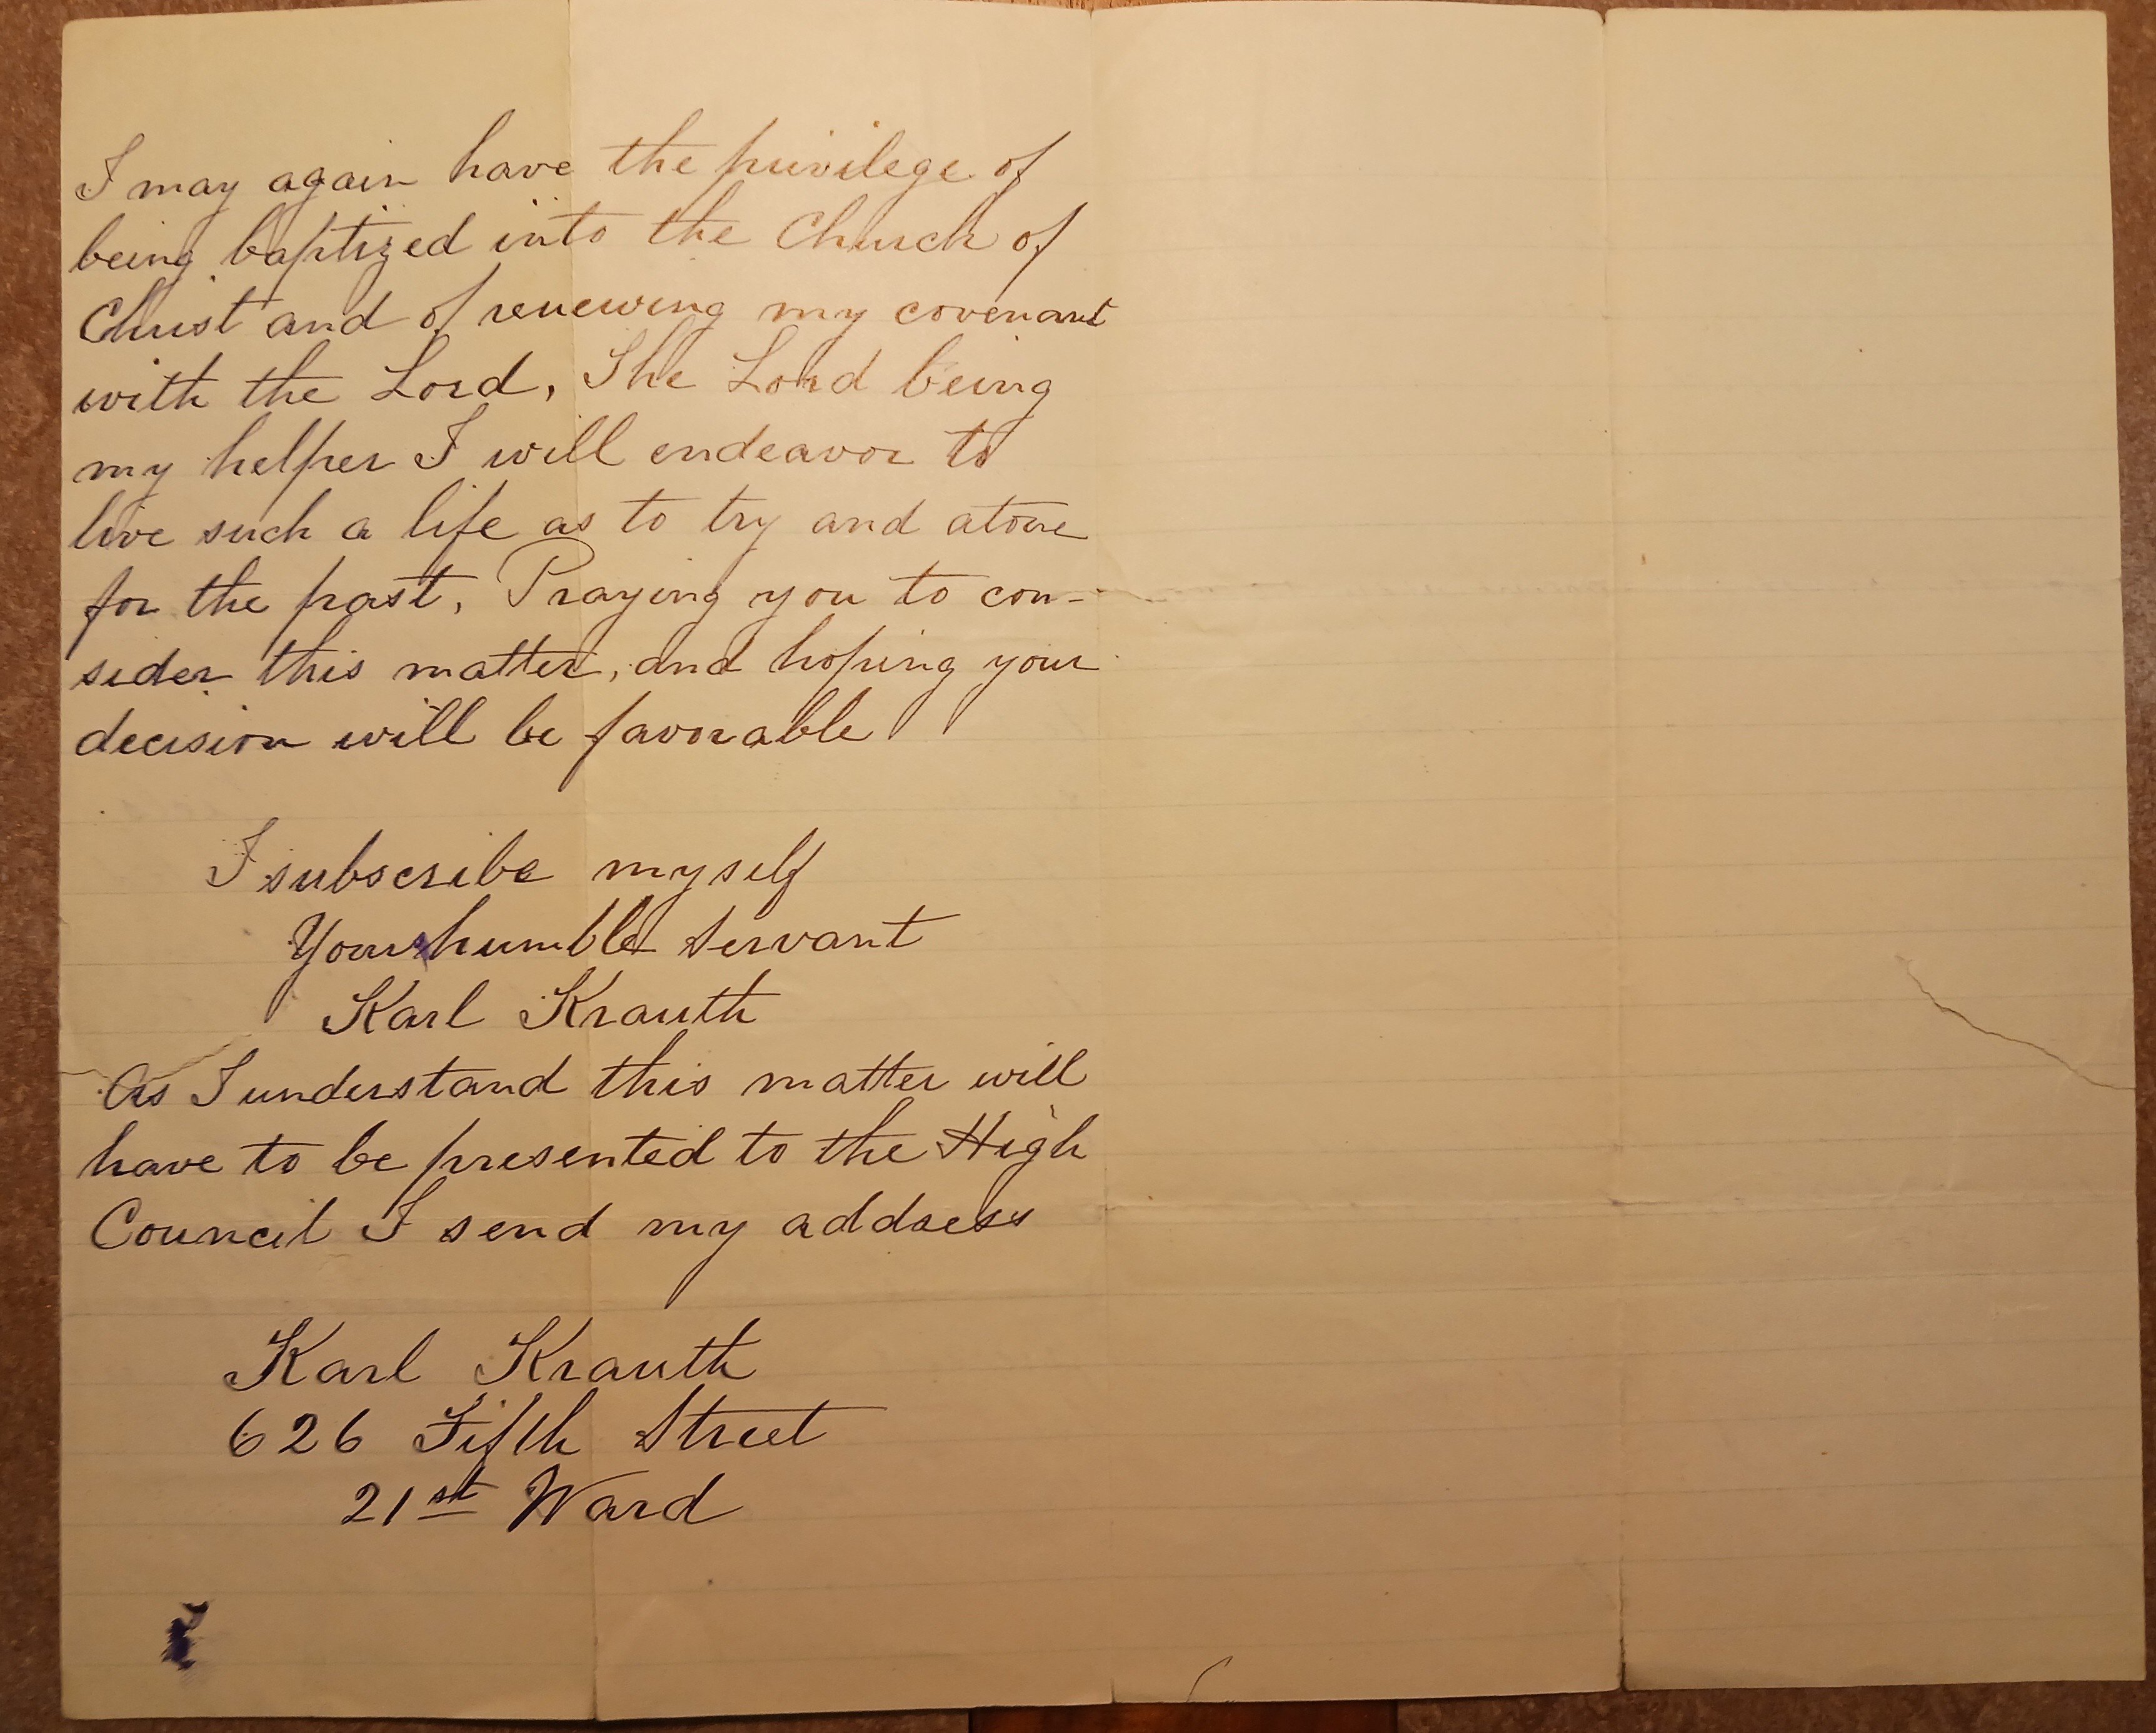 I may again have the privilege of
being baptized into the Church of
Christ and of renewing my covenant
with the Lord, The Lord being
my helper I will endeavor to
live such a life as to try and atone
for the past, Praying you to con-
sider this matter, and hoping your
decision will be favorable
I subscribe myself
Your humble servant
Karl Krauth
As I understand this matter will
have to be presented to the High
Council I send my address
Karl Krauth
626 Fifth Street
21st Ward